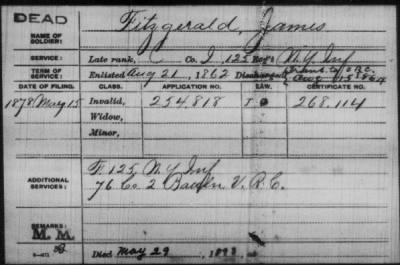 DEAD
NAME OF SOLDIER: Fitzgerald, James
SERVICE: Late rank, Co. I, 125 Reg't N.Y. Inf
TERM OF SERVICE: Enlisted Aug 21, 1862 Discharged
DATE OF FILING. CLASS. APPLICATION NO. LAW. CERTIFICATE NO.
1878 May 15 Invalid, 254,818 268,114
Widow,
Minor,
ADDITIONAL SERVICES: F. 125, N.Y. Inf
76 Co 2 V.R.C.
REMARKS:
M.M.
Died May 29